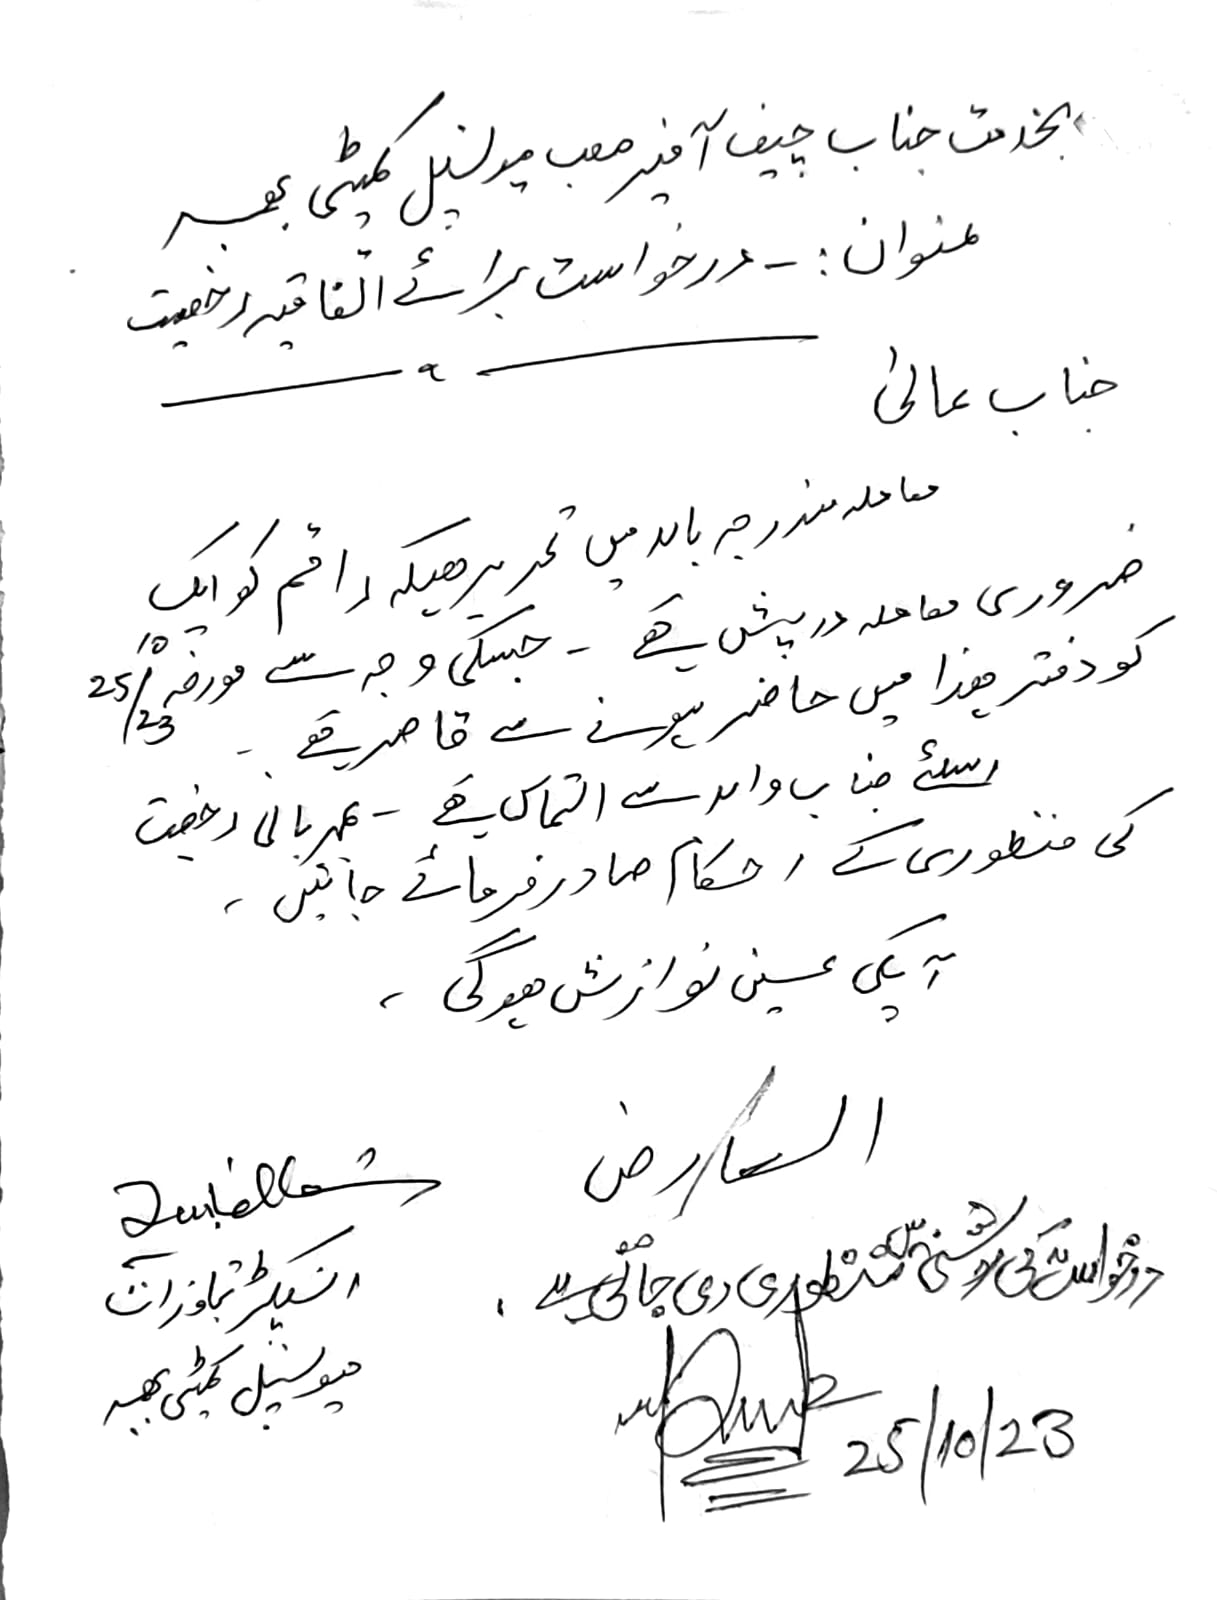 بخدمت جناب چیف آفیسر صاحب میونسپل کمیٹی بھمبر
عنوان :۔ درخواست برائے اتفاقیہ رخصت
جناب عالیٰ
معاملہ مندرجہ بالا میں تحریر ھیکہ راقم کو ایک
ضروری معاملہ درپیش ہے ۔ جسکی وجہ سے مورخہ 25/10/23
کو دفتر ھذا میں حاضر ہونے سے قاصر ہے ۔
اسلئے جناب والا سے التماس ہے ۔ مہربانی رخصت
کی منظوری کے احکام صادر فرمائے جائیں ۔
آپکی عین نوازش ھوگی ۔
العارض
انسپکٹر تجاوزات
میونسپل کمیٹی بھمبر
درخواست کی روشنی میں منظوری دی جاتی ہے ۔
25/10/23